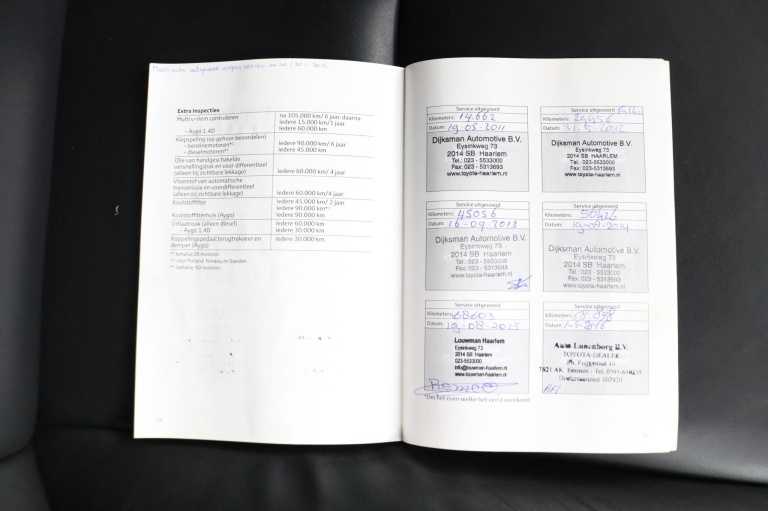 Extra Inspecties
Multi v-riem controleren na 105.000 km/ 6 jaar, daarna
iedere 15.000 km/1 jaar
- Aygo 1.4D iedere 60.000 km
Klepspeling (op gehoor beoordelen)
- benzinemotoren iedere 90.000 km/ 6 jaar
- dieselmotoren iedere 45.000 km
Olie van handgeschakelde
versnellingsbak en voor differentieel
(alleen bij zichtbare lekkage) iedere 60.000 km/ 4 jaar
Vloeistof van automatische
transmissie en voordifferentieel
(alleen bij zichtbare lekkage) iedere 60.000 km/4 jaar
Koolstoffilter iedere 45.000 km/ 2 jaar
iedere 90.000 km
Koolstoffilterhuis (Aygo) iedere 90.000 km
Uitlaatrook (alleen diesel) iedere 60.000 km
- Aygo 1.4D iedere 30.000 km
Koppelingspedaal,terugtrekveer en iedere 30.000 km.
demper (Aygo)
Service uitgevoerd
Kilometers: 14.662
Datum: 19-05-2011
Dijksman Automotive B.V.
Eysinkweg 73
2014 SB Haarlem
Tel.: 023 - 5533000
Fax: 023 - 5313693
www.toyota-haarlem.nl
Service uitgevoerd
Kilometers: 29956
Datum: 31-5-2012
Dijksman Automotive B.V.
Eysinkweg 73
2014 SB HAARLEM
Tel. 023 - 5533000
Fax: 023 - 5313693
www.toyota-haarlem.nl
Service uitgevoerd
Kilometers: 45056
Datum: 16-09-2013
Dijksman Automotive B.V.
Eysinkweg 73
2014 SB Haarlem
Tel.: 023 - 5533000
Fax: 023 - 5313693
www.toyota-haarlem.nl
Service uitgevoerd
Kilometers: 50426
Datum: 19-08-2014
Dijksman Automotive B.V.
Eysinkweg 73
2014 SB Haarlem
Tel.: 023 - 5533000
Fax: 023 - 5313693
www.toyota-haarlem.nl
Service uitgevoerd
Kilometers: 68603
Datum: 19-08-2015
Louwman Haarlem
Eysinkweg 73
2014 SB Haarlem
023-5533000
info@louwman-haarlem.nl
www.louwman-haarlem.nl
Service uitgevoerd
Kilometers:
Datum:
TOYOTA-DEALER
7821 AK Emmen - Tel. 0591-630235
*Om het even welke het eerst voorkomt